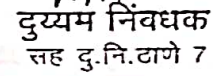 दुय्यम निंवधक
सह दु.नि.ठाणे 7